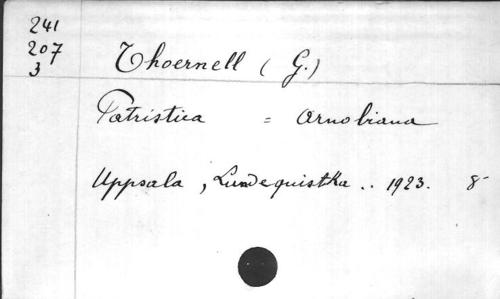 241
207
3
Thoernell (G.)
Patristica = Arnobiana
Uppsala, Lundequistka.. 1923. 8-